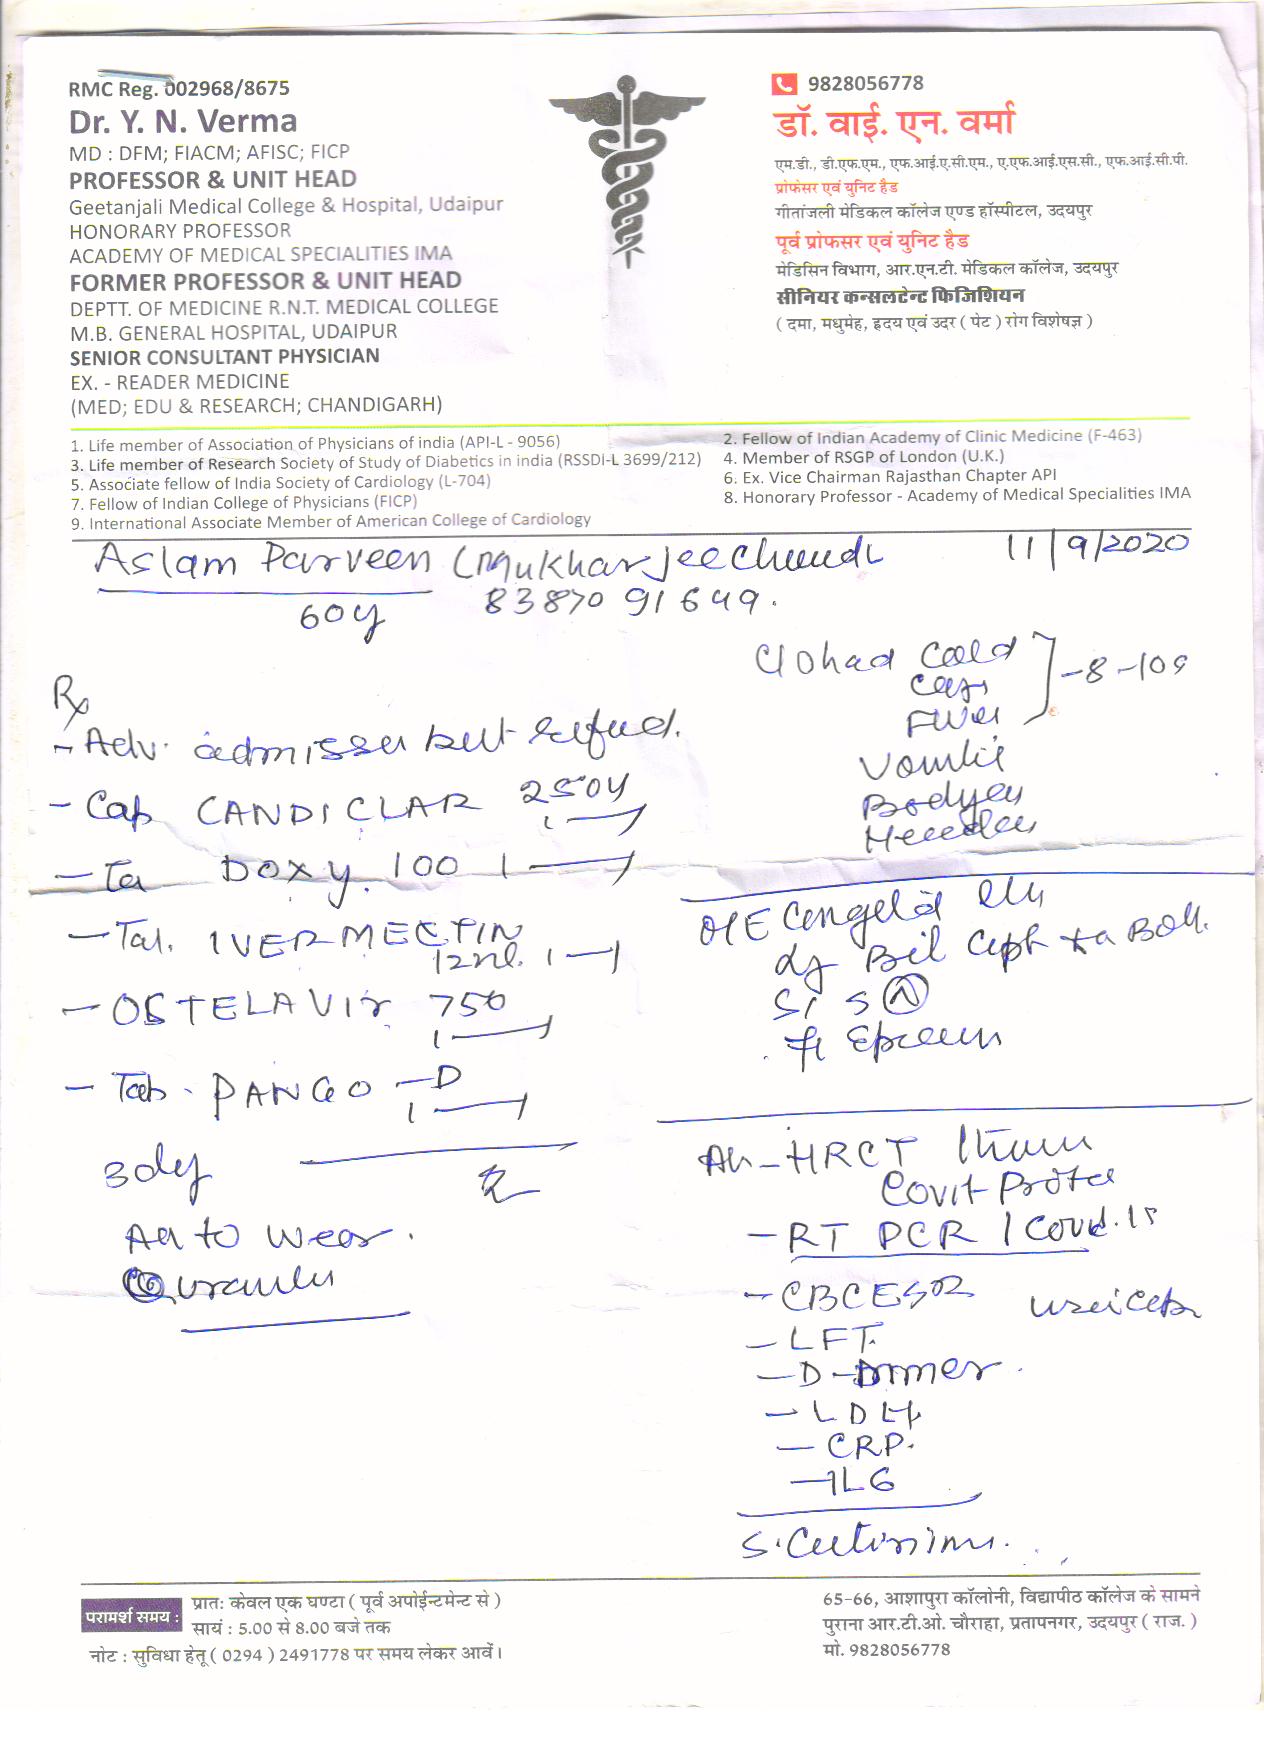 RMC Reg. 002968/8675
Dr. Y. N. Verma
MD : DFM; FIACM; AFISC; FICP
PROFESSOR & UNIT HEAD
Geetanjali Medical College & Hospital, Udaipur
HONORARY PROFESSOR
ACADEMY OF MEDICAL SPECIALITIES IMA
FORMER PROFESSOR & UNIT HEAD
DEPTT. OF MEDICINE R.N.T. MEDICAL COLLEGE
M.B. GENERAL HOSPITAL, UDAIPUR
SENIOR CONSULTANT PHYSICIAN
EX. - READER MEDICINE
(MED; EDU & RESEARCH; CHANDIGARH)
9828056778
डॉ. वाई. एन. वर्मा
एम.डी., डी.एफ.एम., एफ.आई.ए.सी.एम., ए.एफ.आई.एस.सी., एफ.आई.सी.पी.
प्रोफेसर एवं युनिट हैड
गीतांजली मेडिकल कॉलेज एण्ड हॉस्पीटल, उदयपुर
पूर्व प्रोफसर एवं युनिट हैड
मेडिसिन विभाग, आर.एन.टी. मेडिकल कॉलेज, उदयपुर
सीनियर कन्सलटेन्ट फिजिशियन
( दमा, मधुमेह, हृदय एवं उदर ( पेट ) रोग विशेषज्ञ )
1. Life member of Association of Physicians of india (API-L - 9056)
2. Fellow of Indian Academy of Clinic Medicine (F-463)
3. Life member of Research Society of Study of Diabetics in india (RSSDI-L 3699/212)
4. Member of RSGP of London (U.K.)
5. Associate fellow of India Society of Cardiology (L-704)
6. Ex. Vice Chairman Rajasthan Chapter API
7. Fellow of Indian College of Physicians (FICP)
8. Honorary Professor - Academy of Medical Specialities IMA
9. International Associate Member of American College of Cardiology
Aslam Parveen (Mukharjee 11/9/2020
60y 83870 91649.
Rx
- Adv. but
- Cap CANDICLAR
- Ta DOXY. 100 1
- Tab. IVERMECTIN
1
- OSTELAVIR 750
1
- Tab. PANGO - D
1
to wear.
had Cold
Fever
O/E
- HRCT
- RT PCR
- CBC ESR
- LFT.
- D-Dimer.
- LDH.
- CRP.
- IL6
परामर्श समय :
प्रात: केवल एक घण्टा ( पूर्व अपोईन्टमेन्ट से )
सायं : 5.00 से 8.00 बजे तक
नोट : सुविधा हेतू ( 0294 ) 2491778 पर समय लेकर आवें।
65-66, आशापुरा कॉलोनी, विद्यापीठ कॉलेज के सामने
पुराना आर.टी.ओ. चौराहा, प्रतापनगर, उदयपुर ( राज. )
मो. 9828056778